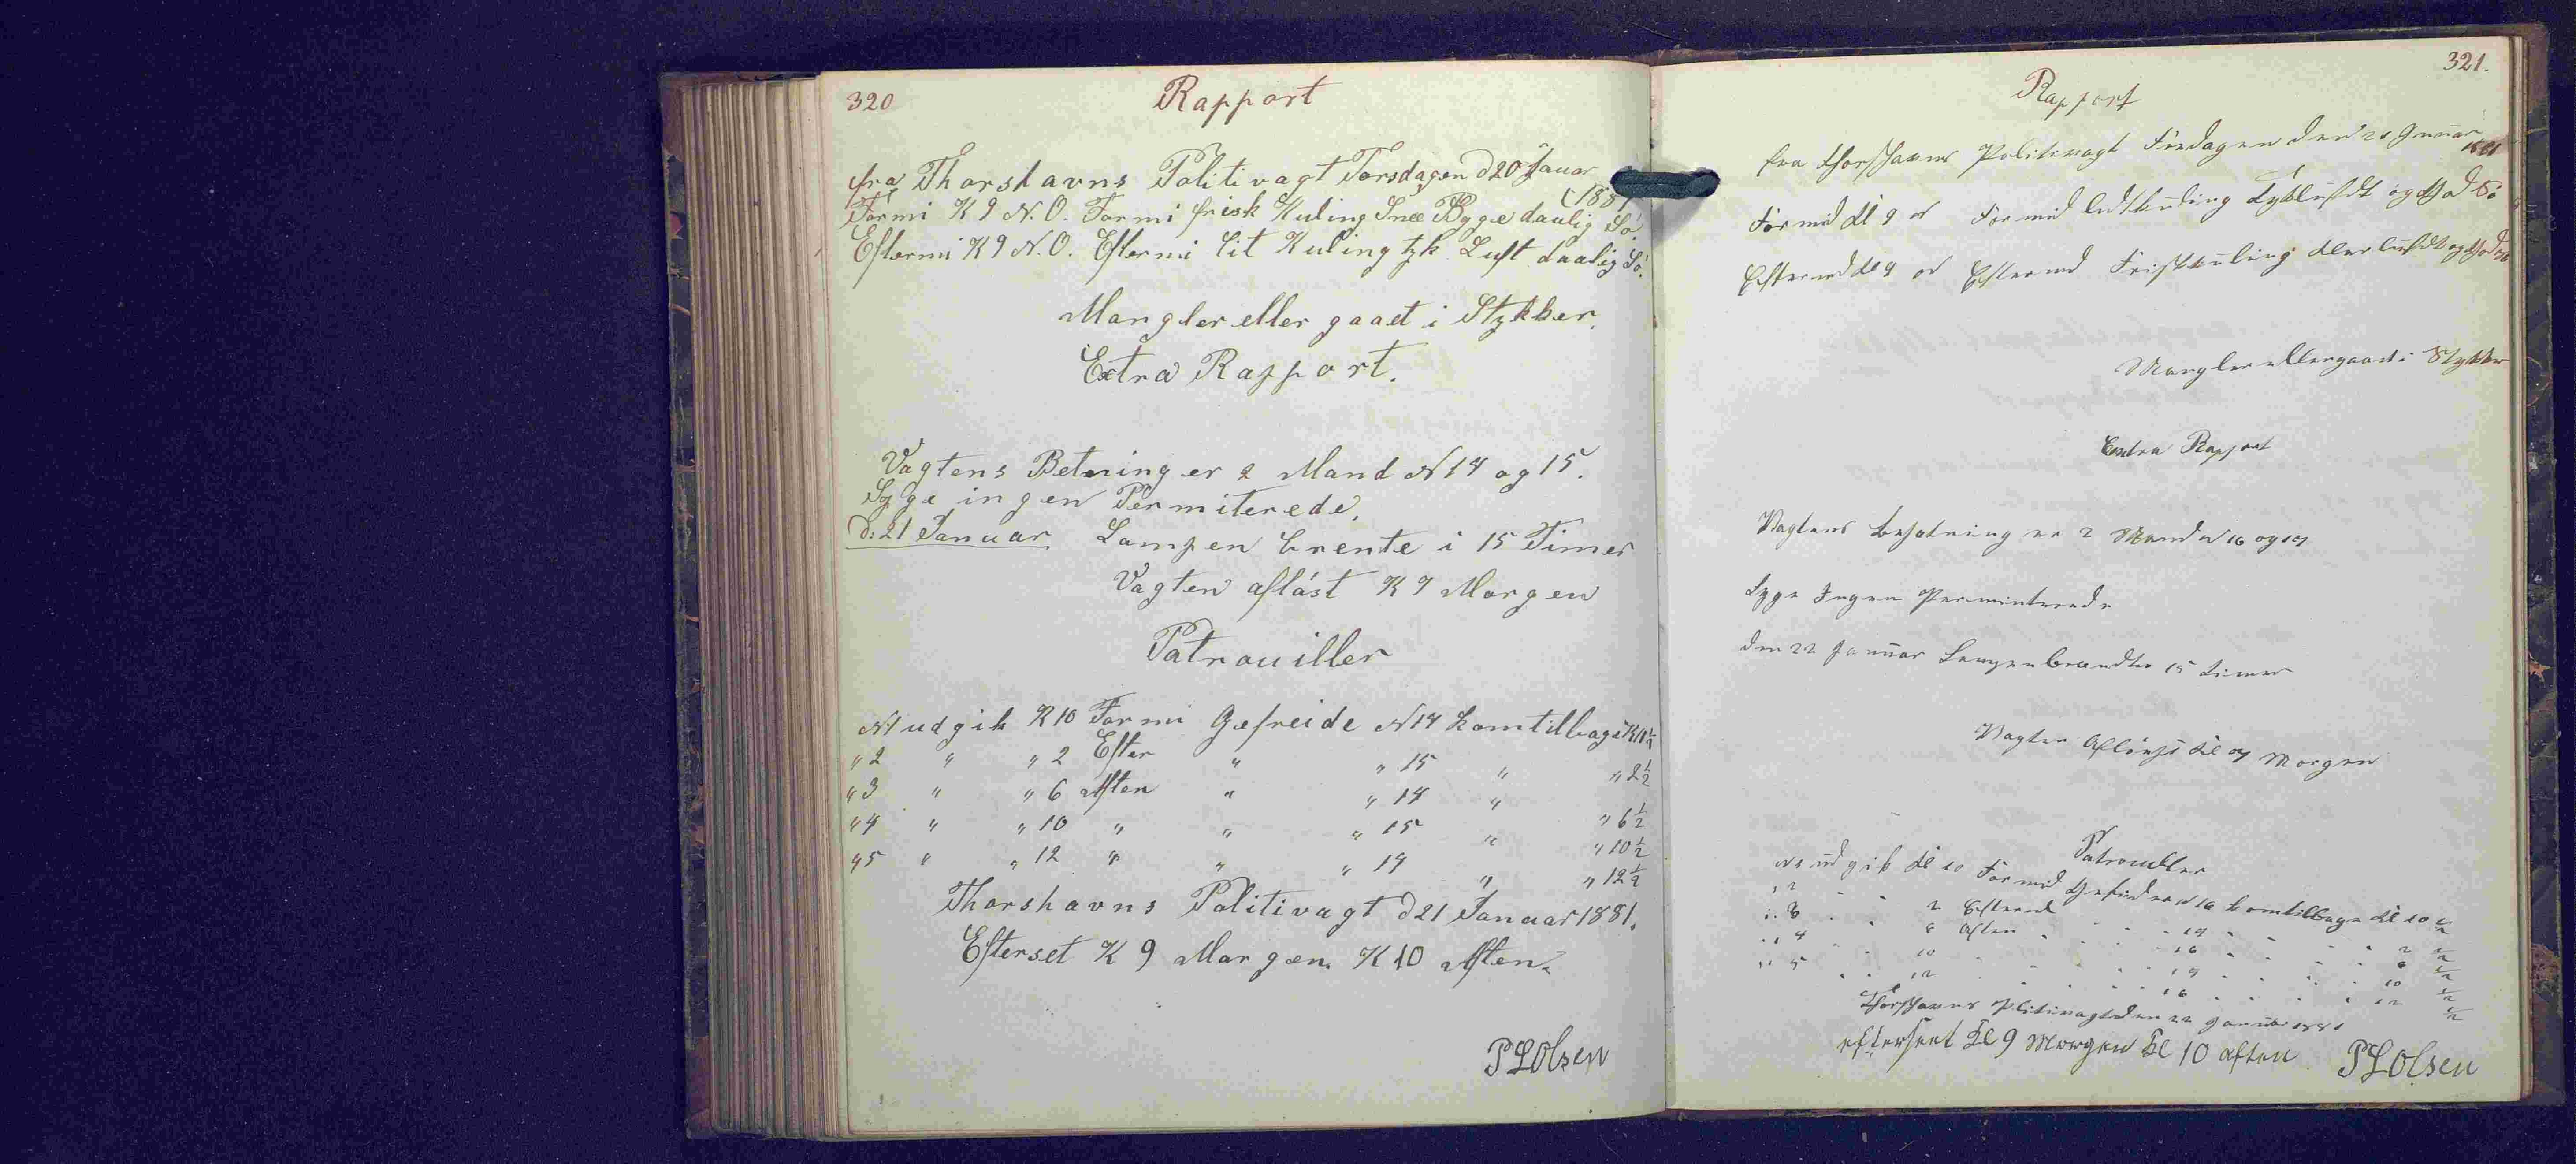 320
Rapport
fra Thorshavns Politivagt Torsdagen d 20 Januar
(1881
Formi K 9 N.O. Formi frisk Kuling Snee Byge daalig Sö.
Eftermi K 9 N.O. Eftermi lit Kuling tyk Luft daalig Sö.
Mangler eller gaaet i Stykker.
Extra Rapport.
Vagtens Betning er 2 Mand N 14 og 15.
Syge ingen Permiterede.
d: 21 Januar Lampen brente i 15 Timer
Vagten aflöst K 7 Morgen
Patrouiller
N1 udgik K 10 Formi Gefreide N 14 kom tilbage K 10½
" 2 " " 2 Efter " " 15 " " 2½
" 3 " " 6 Aften " " 14 " " 6½
" 4 " " 10 " " " 15 " " 10½
" 5 " " 12 " " " 14 " " 12½
Thorshavns Politivagt d 21 Januar 1881.
Efterset K 9 Morgen K 10 Aften.
P L Olsen
321.
Rapport
fra Thorshavns Politivagt Fredagen den 21 Januar
1881
Formid Kl 9 Formid lidt kuling Tyk luft og God Sö
Eftermd Kl 9 Eftermd Frisk kuling klar luft og God Sö
Mangler eller gaaet i Stykker
Extra Rapport
Vagtens besatning er 2 Mand N 16 og 17
Syge Ingen Perminterede
den 22 Januar Lampen brendte 15 timer
Vagten Aflöst Kl 7 Morgen
Patrouller
N 1 udgik Kl 10 Formid Gefrider N 16 kom tilbage Kl 10 ½
" 2 " " 2 Eftermd " " 17 " " 2 ½
" 3 " " 6 Aften " " 16 " " 6 ½
" 4 " " 10 " " " 17 " " 10 ½
" 5 " " 12 " " " 16 " " 12 ½
Thorshavns Politivagt den 22 Januar 1881
efterseet Kl 9 Morgen Kl 10 aften
P L Olsen